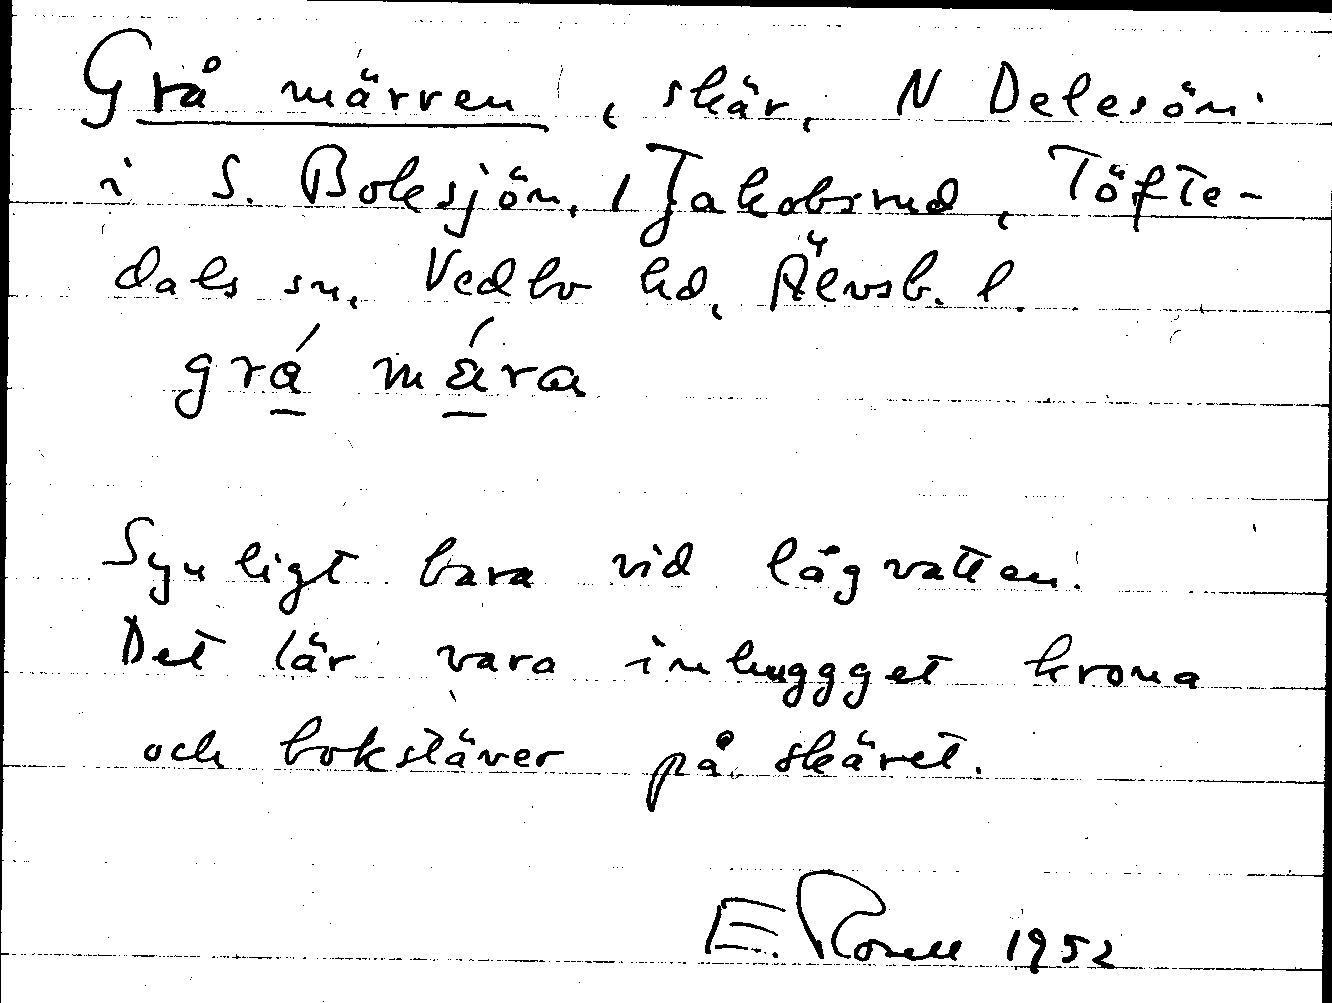 Grå märren, skär, N Delesön
i S. Boksjön, / Jakobsrud, Töfte-
dals sn, Vedbo hd, Älvsb. l.
grá mára
Synligt bara vid lågvatten.
Det lär vara inhuggget krona
och bokstäver på skäret.
E. Rosell 1952